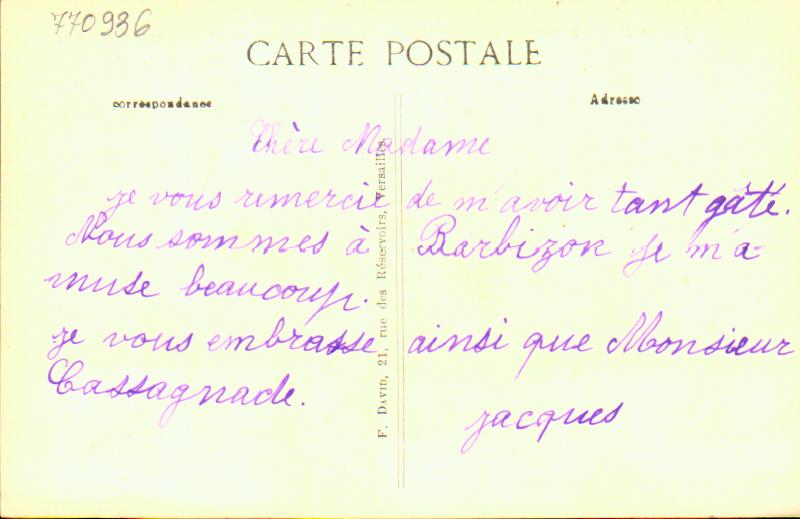 770936
CARTE POSTALE
correspondance
Adresse
Chère Madame
je vous remercie de m'avoir tant gâté.
Nous sommes à Barbizon je m'a-
muse beaucoup.
je vous embrasse ainsi que Monsieur
Cassagnade.
jacques
F. DAVID, 21, rue des Réservoirs, Versailles